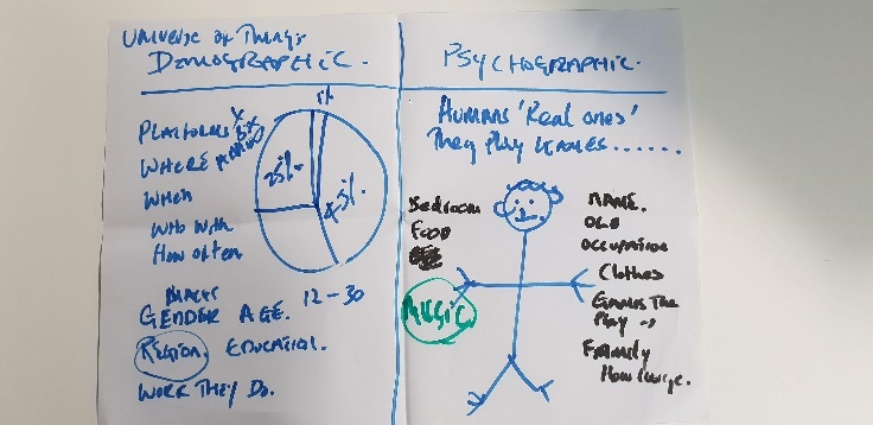 Universe of Things
DEMOGRAPHIC.
1%
PLATFORMS
WHERE
25%
45%.
WHEN
Who With
How often
GENDER AGE. 12-30
REGION. EDUCATION.
WORK THEY Do.
PSYCHOGRAPHIC.
HUMANS 'Real ones'
They Play GAMES......
Bedroom
FOOD
MUSIC
NAME.
OLD
OCCUPATION
Clothes
GAMES The
Play
FAMILY
How large.